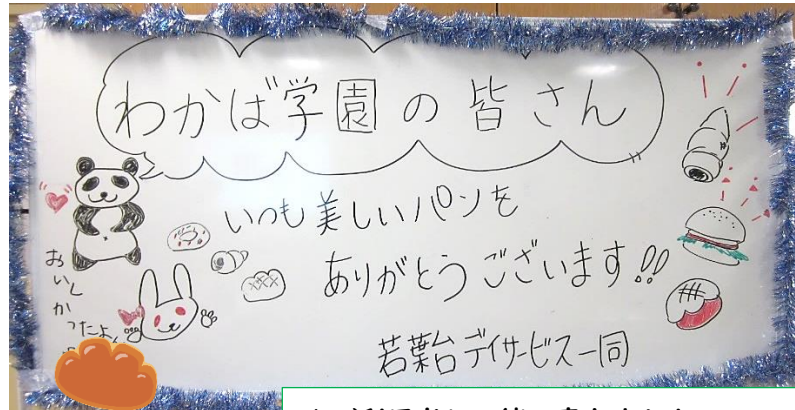 わかば学園の皆さん
いつも美しいパンを
ありがとうございます!!
若葉台デイサービス一同
おいしかったよ